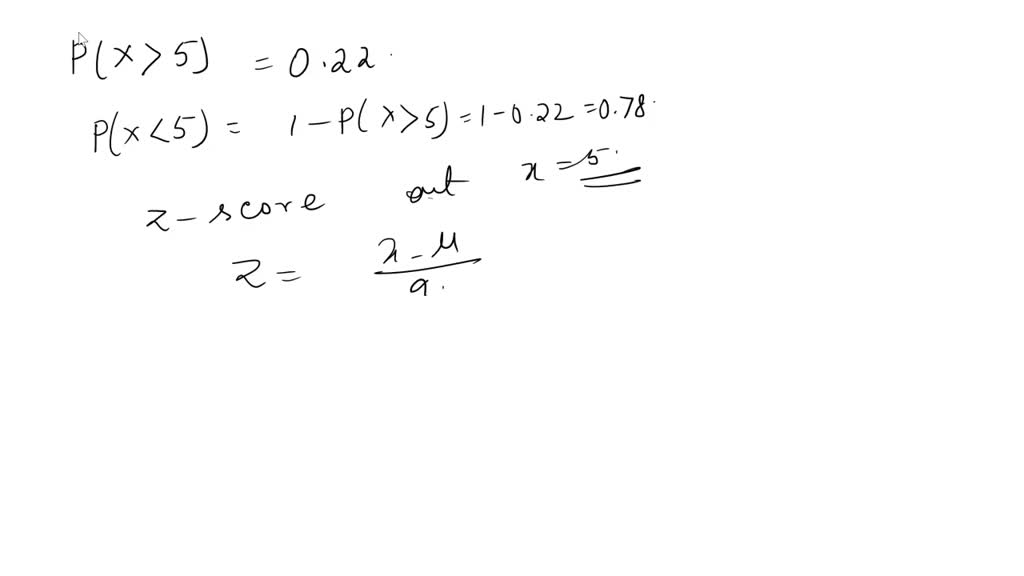 P(x > 5) = 0.22.
P(x < 5) = 1 - P(x > 5) = 1 - 0.22 = 0.78.
z - score out x = 5.
z = x - μ / 9.